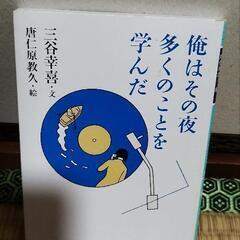 俺はその夜
多くのことを
学んだ
三谷幸喜・文
唐仁原教久・絵